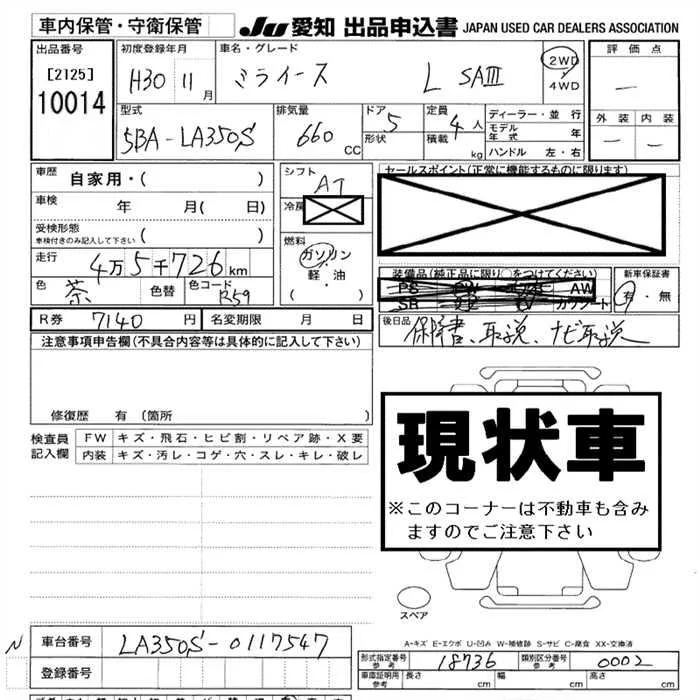 車内保管・守衛保管 JU 愛知 出品申込書 JAPAN USED CAR DEALERS ASSOCIATION
出品番号 初度登録年月 車名・グレード 評価点
[2125] H30 11月 ミライース L SAⅢ 2WD 4WD —
10014 型式 排気量 ドア 定員 ディーラー・並行 外装 内装
5BA-LA350S 660 CC 5 形状 4人 積載 kg モデル年式 年 — —
ハンドル 左・右
車歴 自家用・( ) シフト AT セールスポイント(正常に機能するものに限ります)
車検 年 月( 日) 冷房
受検形態 ( )
車検付きのみ記入して下さい
燃料
走行 4万5千726km ガソリン 装備品(純正品に限り○をつけてください) 新車保証書
色 茶 色替 色コード R59 軽・油 ( ) PS AW 有・無
SR カワシート
R券 7140円 名変期限 月 日 後日品 保障書、取説、ナビ取説
注意事項申告欄(不具合内容等は具体的に記入して下さい)
修復歴 有(箇所
検査員 FW キズ・飛石・ヒビ割・リペア跡・X要
記入欄 内装 キズ・汚レ・コゲ・穴・スレ・キレ・破レ
現状車
※このコーナーは不動車も含み
ますのでご注意下さい
スペア
A-キズ E-エクボ U-凹み W-補修跡 S-サビ C-腐食 XX-交換済
N 車台番号 LA350S-0117547
形式指定番号 参考 18736 類別区分番号 参考 0002
登録番号 車庫証明用 参考 長さ cm 幅 cm 高さ cm